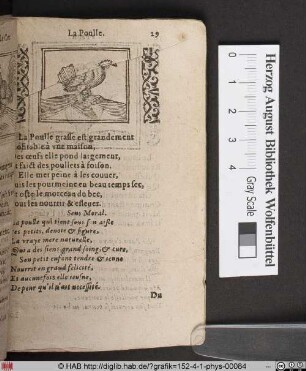 La Poulle.
19
La Poulle grasse est grandement
à vne maison,
les œufs elle pond largement,
faict des poullets à foison.
Elle met peine à les couuer,
puis les pourmeine en beau temps sec,
oste le morceau du bec,
les nourrir & esleuer.
Sens Moral.
La poulle qui tient sous
ses petits, denote & figure
La vraye mere naturelle,
Qui a des siens grand soing, & cure.
Son petit enfant tendre & ieune
Nourrit en grand felicité,
Et aucunefois elle ieusne,
De peur qu'il n'ait necessité.
Du
Herzog August Bibliothek Wolfenbüttel
Gray Scale
© HAB http://diglib.hab.de/?grafik=152-4-1-phys-00064